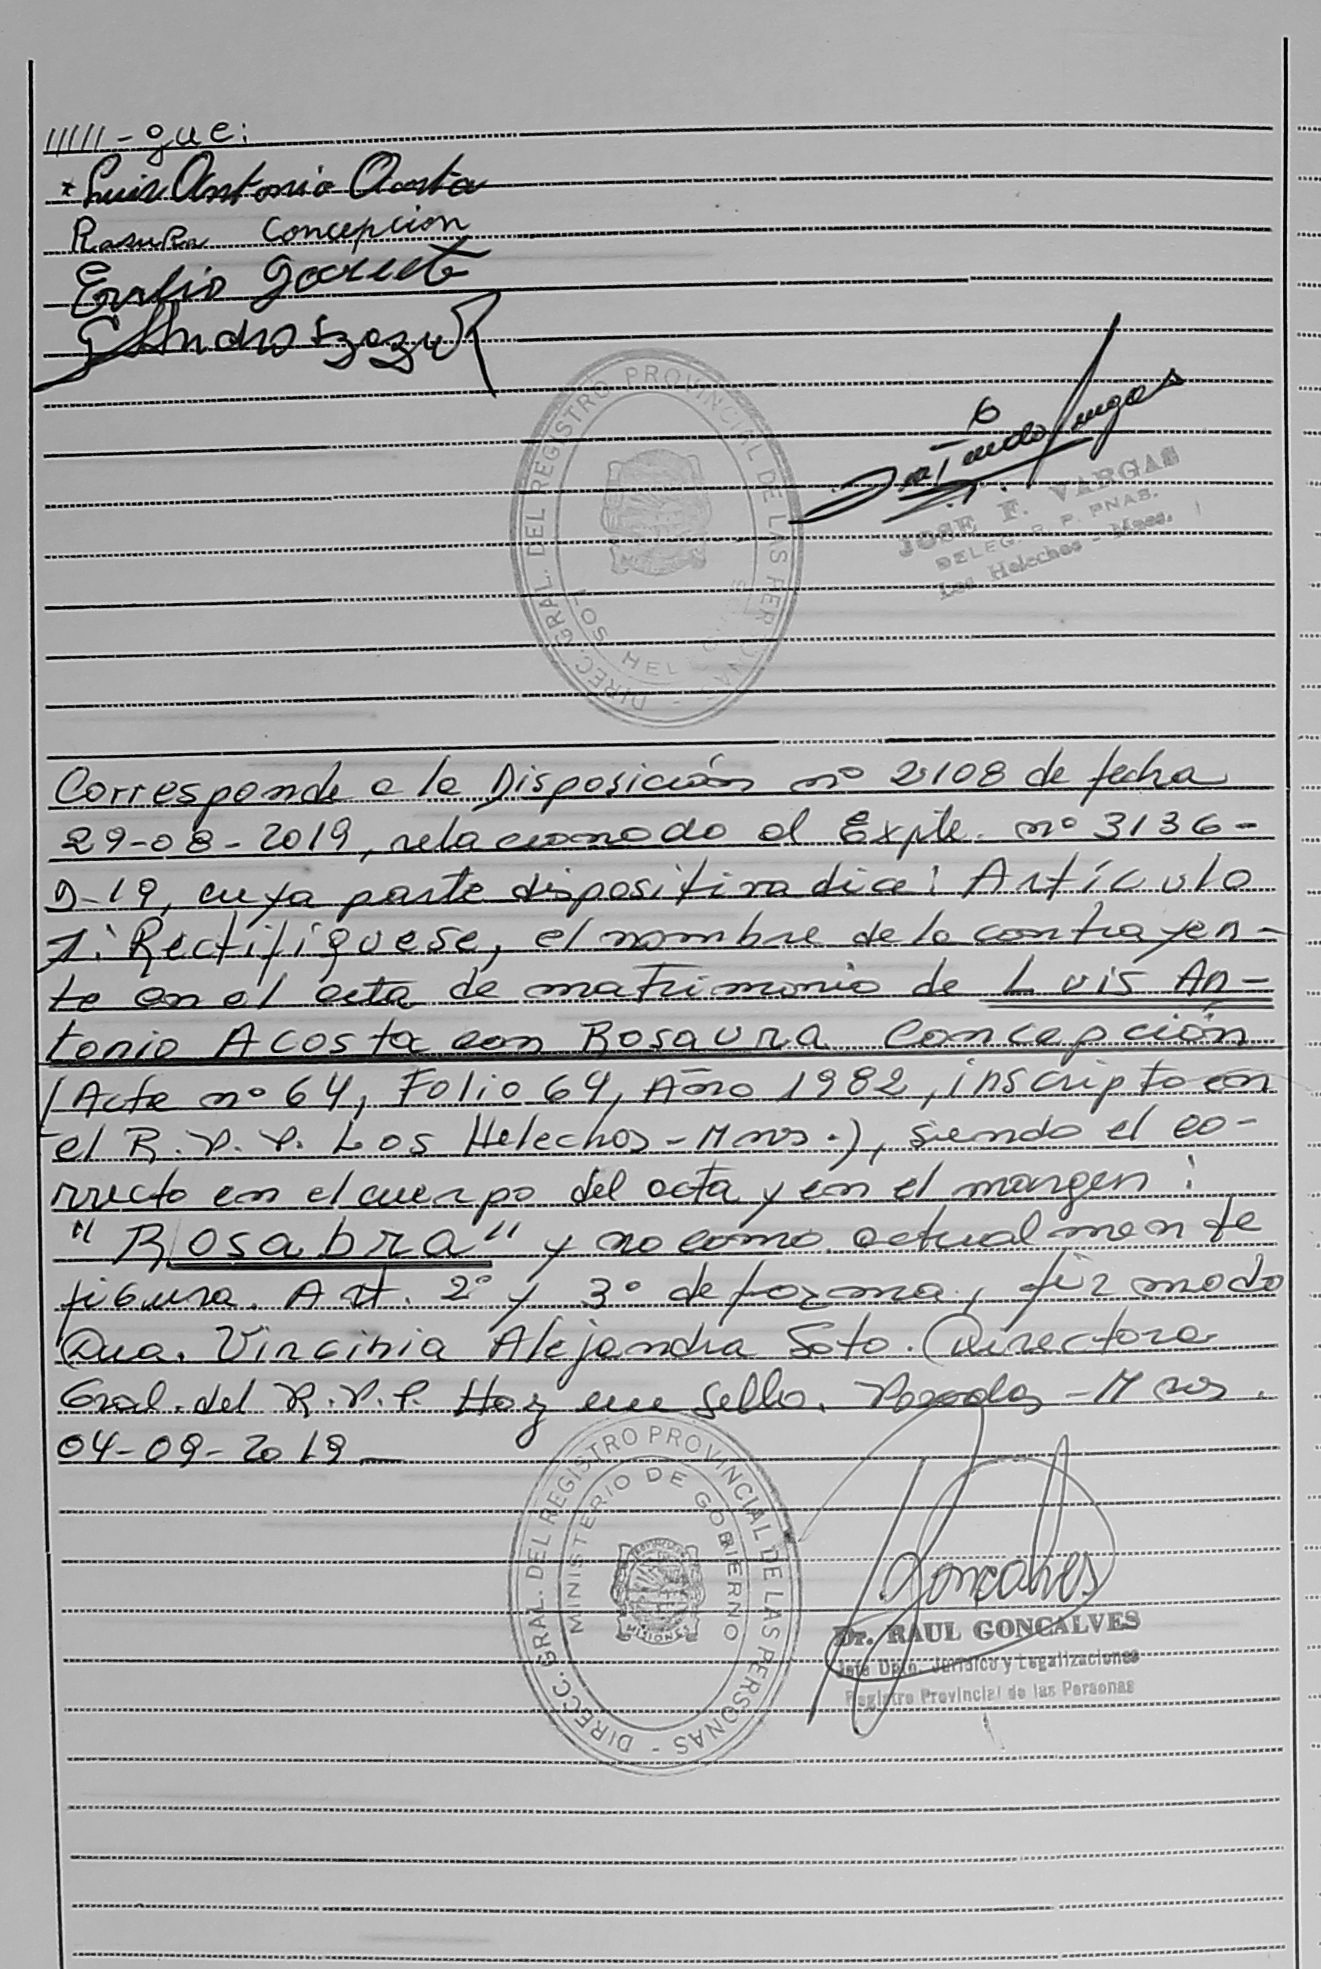 //////-gue:
* Luis Antonio Acosta
Rasura Concepcion
Emilio
DIREC. GRAL. DEL REGISTRO PROVINCIAL DE LAS PERSONAS
LOS HEL
JOSE F. VARGAS
DELEG. R. P. PNAS.
Los Helechos - Mnes.
Corresponde a la Disposición nº 2108 de fecha
29-08-2019, relacionado al Expte. nº 3136-
D-19, cuya parte dispositiva dice: Artículo
1: Rectifíquese, el nombre de la contrayen-
te en el acta de matrimonio de Luis An-
tonio Acosta con Rosaura Concepción
(Acta nº 64, Folio 64, Año 1982, inscripto en
el R.P.P. Los Helechos - Mnes.), siendo el co-
rrecto en el cuerpo del acta y en el margen:
"Rosabra" y no como actualmente
figura. Art. 2º y 3º de forma, firmado
Dra. Vircinia Alejandra Soto. Directora
Gral. del R.P.P. Hay un sello. Posadas - Mnes.
04-09-2019
DIRECC. GRAL. DEL REGISTRO PROVINCIAL DE LAS PERSONAS
MINISTERIO DE GOBIERNO
MISIONES
Goncalves
Dr. RAUL GONCALVES
Jefe Dpto. Jurídico y Legalizaciones
Registro Provincial de las Personas